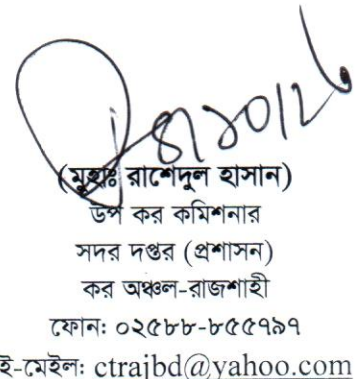 (মুহাঃ রাশেদুল হাসান)
উপ কর কমিশনার
সদর দপ্তর (প্রশাসন)
কর অঞ্চল-রাজশাহী
ফোনঃ ০২৫৮৮-৮৫৫৭৯৭
ই-মেইলঃ ctrajbd@yahoo.com